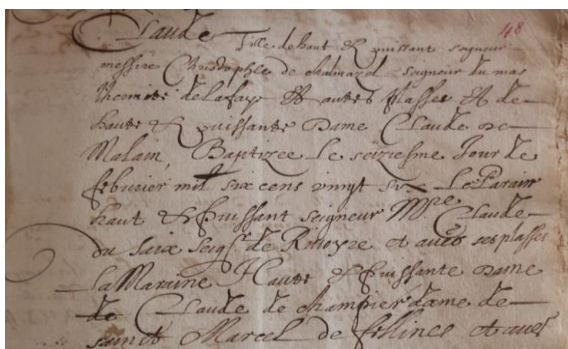 48
Claude
fille de haut & puissant seigneur
messire Christophle de Chalmazel seigneur du mas
de la faye et autres plasses et de
haute & puissante dame Claude de
Malain, Baptizee le seiziesme Jour de
febvrier mil six cens vingt six Le Parain
haut & puissant seigneur Mre Claude
du saix seigr de Rivoyre et autres ses plasses
La Maraine Haute & puissante dame
de Claude de champier dame de
sainct Marcel de fellines et autres